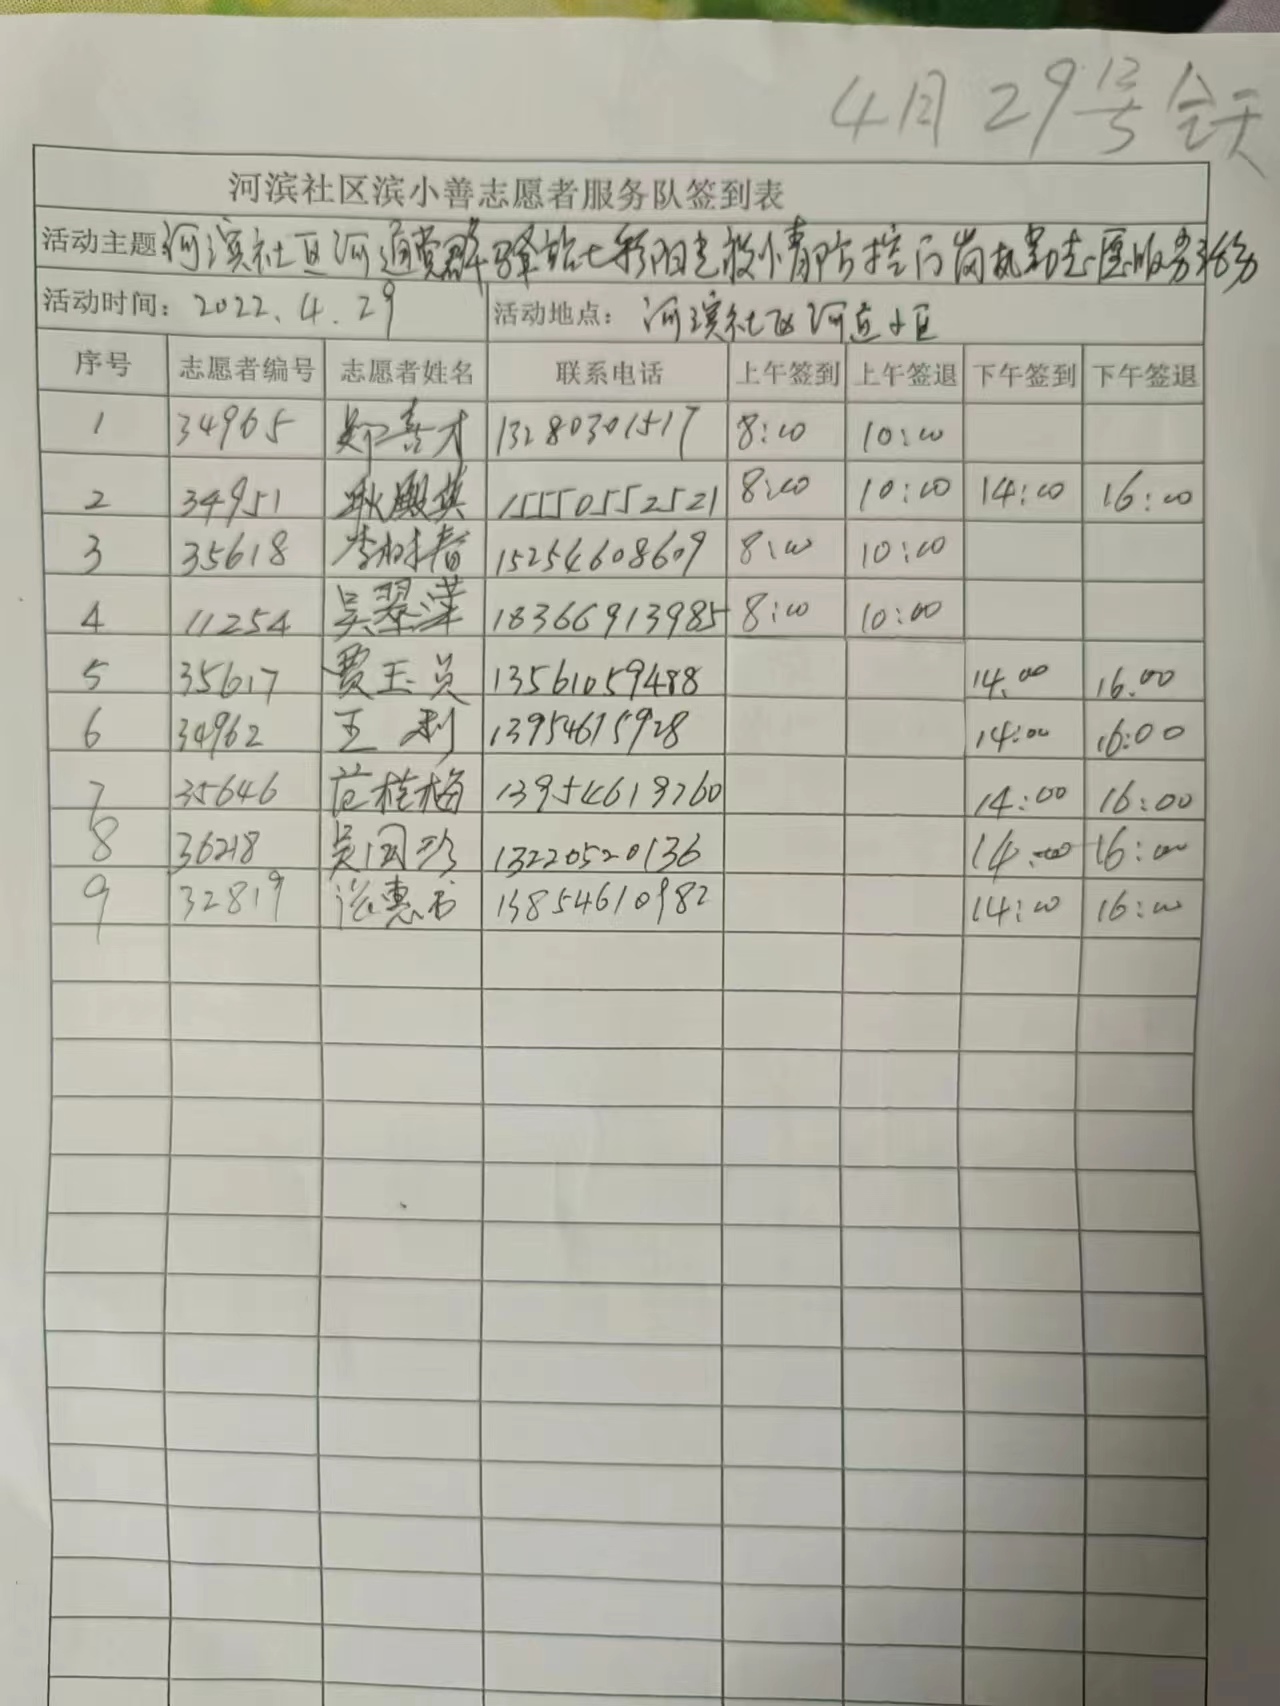 4月29号全天
河滨社区滨小善志愿者服务队签到表
活动主题:河滨社区河通党群驿站七彩阳光 防控门岗执勤志愿服务活动
活动时间：2022.4.29 活动地点：河滨社区河 小区
序号 志愿者编号 志愿者姓名 联系电话 上午签到 上午签退 下午签到 下午签退
1 34965 郑喜才 13280301517 8:00 10:00
2 34951 耿殿英 15550552521 8:00 10:00 14:00 16:00
3 35618 李树春 15254608609 8:00 10:00
4 11254 吴翠萍 18366913985 8:00 10:00
5 35617 贾玉员 13561059488 14.00 16.00
6 34962 王利 13954615928 14:00 16:00
7 35646 范桂梅 13954619760 14:00 16:00
8 36218 吴国珍 13220520136 14:00 16:00
9 32819 惠 13854610982 14:00 16:00